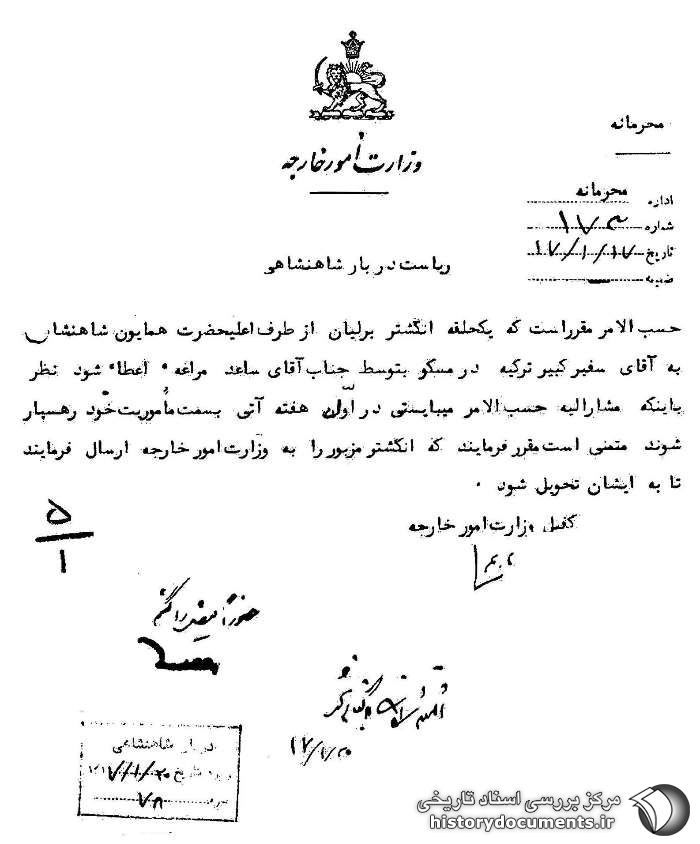 محرمانه
وزارت امور خارجه
اداره محرمانه
شماره ۱۷۳
تاریخ ۱۷/۱/۱۷
ضمیمه
ریاست دربار شاهنشاهی
حسب الامر مقرراست که یکحلقه انگشتر برلیان از طرف اعلیحضرت همایون شاهنشاهی
به آقای سفیر کبیر ترکیه در مسکو بتوسط جناب آقای ساعد مراغه اعطاء شود نظر
باینکه مشارالیه حسب الامر میبایستی در اوّل هفته آتی بسمت مأموریت خود رهسپار
شوند متمنی است مقرر فرمایند که انگشتر مزبور را به وزارت امور خارجه ارسال فرمایند
تا به ایشان تحویل شود .
کفیل وزارت امور خارجه
۵
۱
۱۷/۱/۲۰
دربار شاهنشاهی
ورود بتاریخ ۱۳۱۷/۱/۲۰
نمره ۷۸
مرکز بررسی اسناد تاریخی
historydocuments.ir